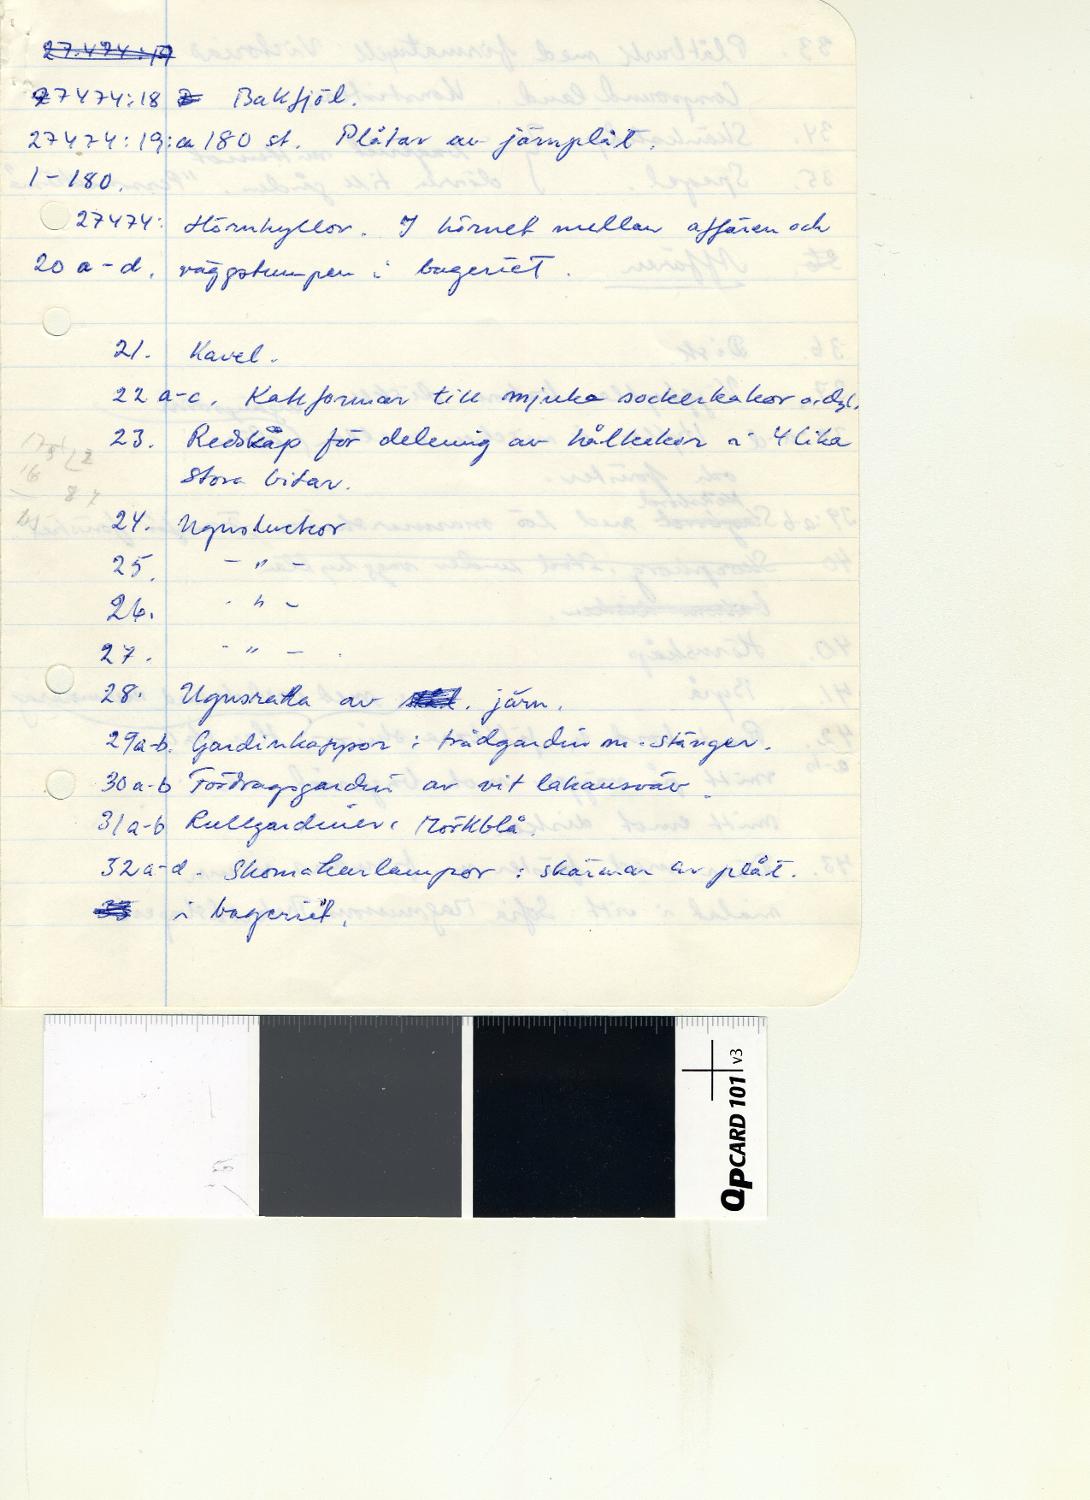 27474:18 Bakfjöl.
27474:19:a 180 st. Plåtar av järnplåt.
1-180.
27474: Hörnhyllor. I hörnet mellan affären och
20 a-d. väggstumpen i bageriet.
21. Kavel.
22 a-c. Kakformar till mjuka sockerkakor o.dyl.
23. Redskap för delning av hålkakor i 4 lika
stora bitar.
24. Ugnsluckor
25. - " -
26. - " -
27. - " -
28. Ugnsraka av järn.
29a-b. Gardinkappor i trådgardin m. stänger.
30 a-b Fördragsgardin av vit lakansväv.
31a-b Rullgardiner. Mörkblå.
32a-d. Skomakarlampor i skärmar av plåt.
i bageriet.
QpCARD 101 v3